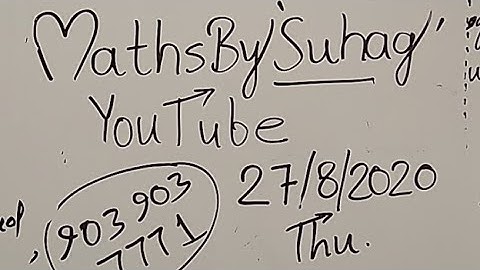 MathsBy'Suhag'
YouTube
27/8/2020
Thu.
903 903
7771